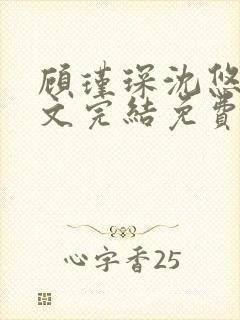 顾瑾琛沈悠
文完結免費
心字香25